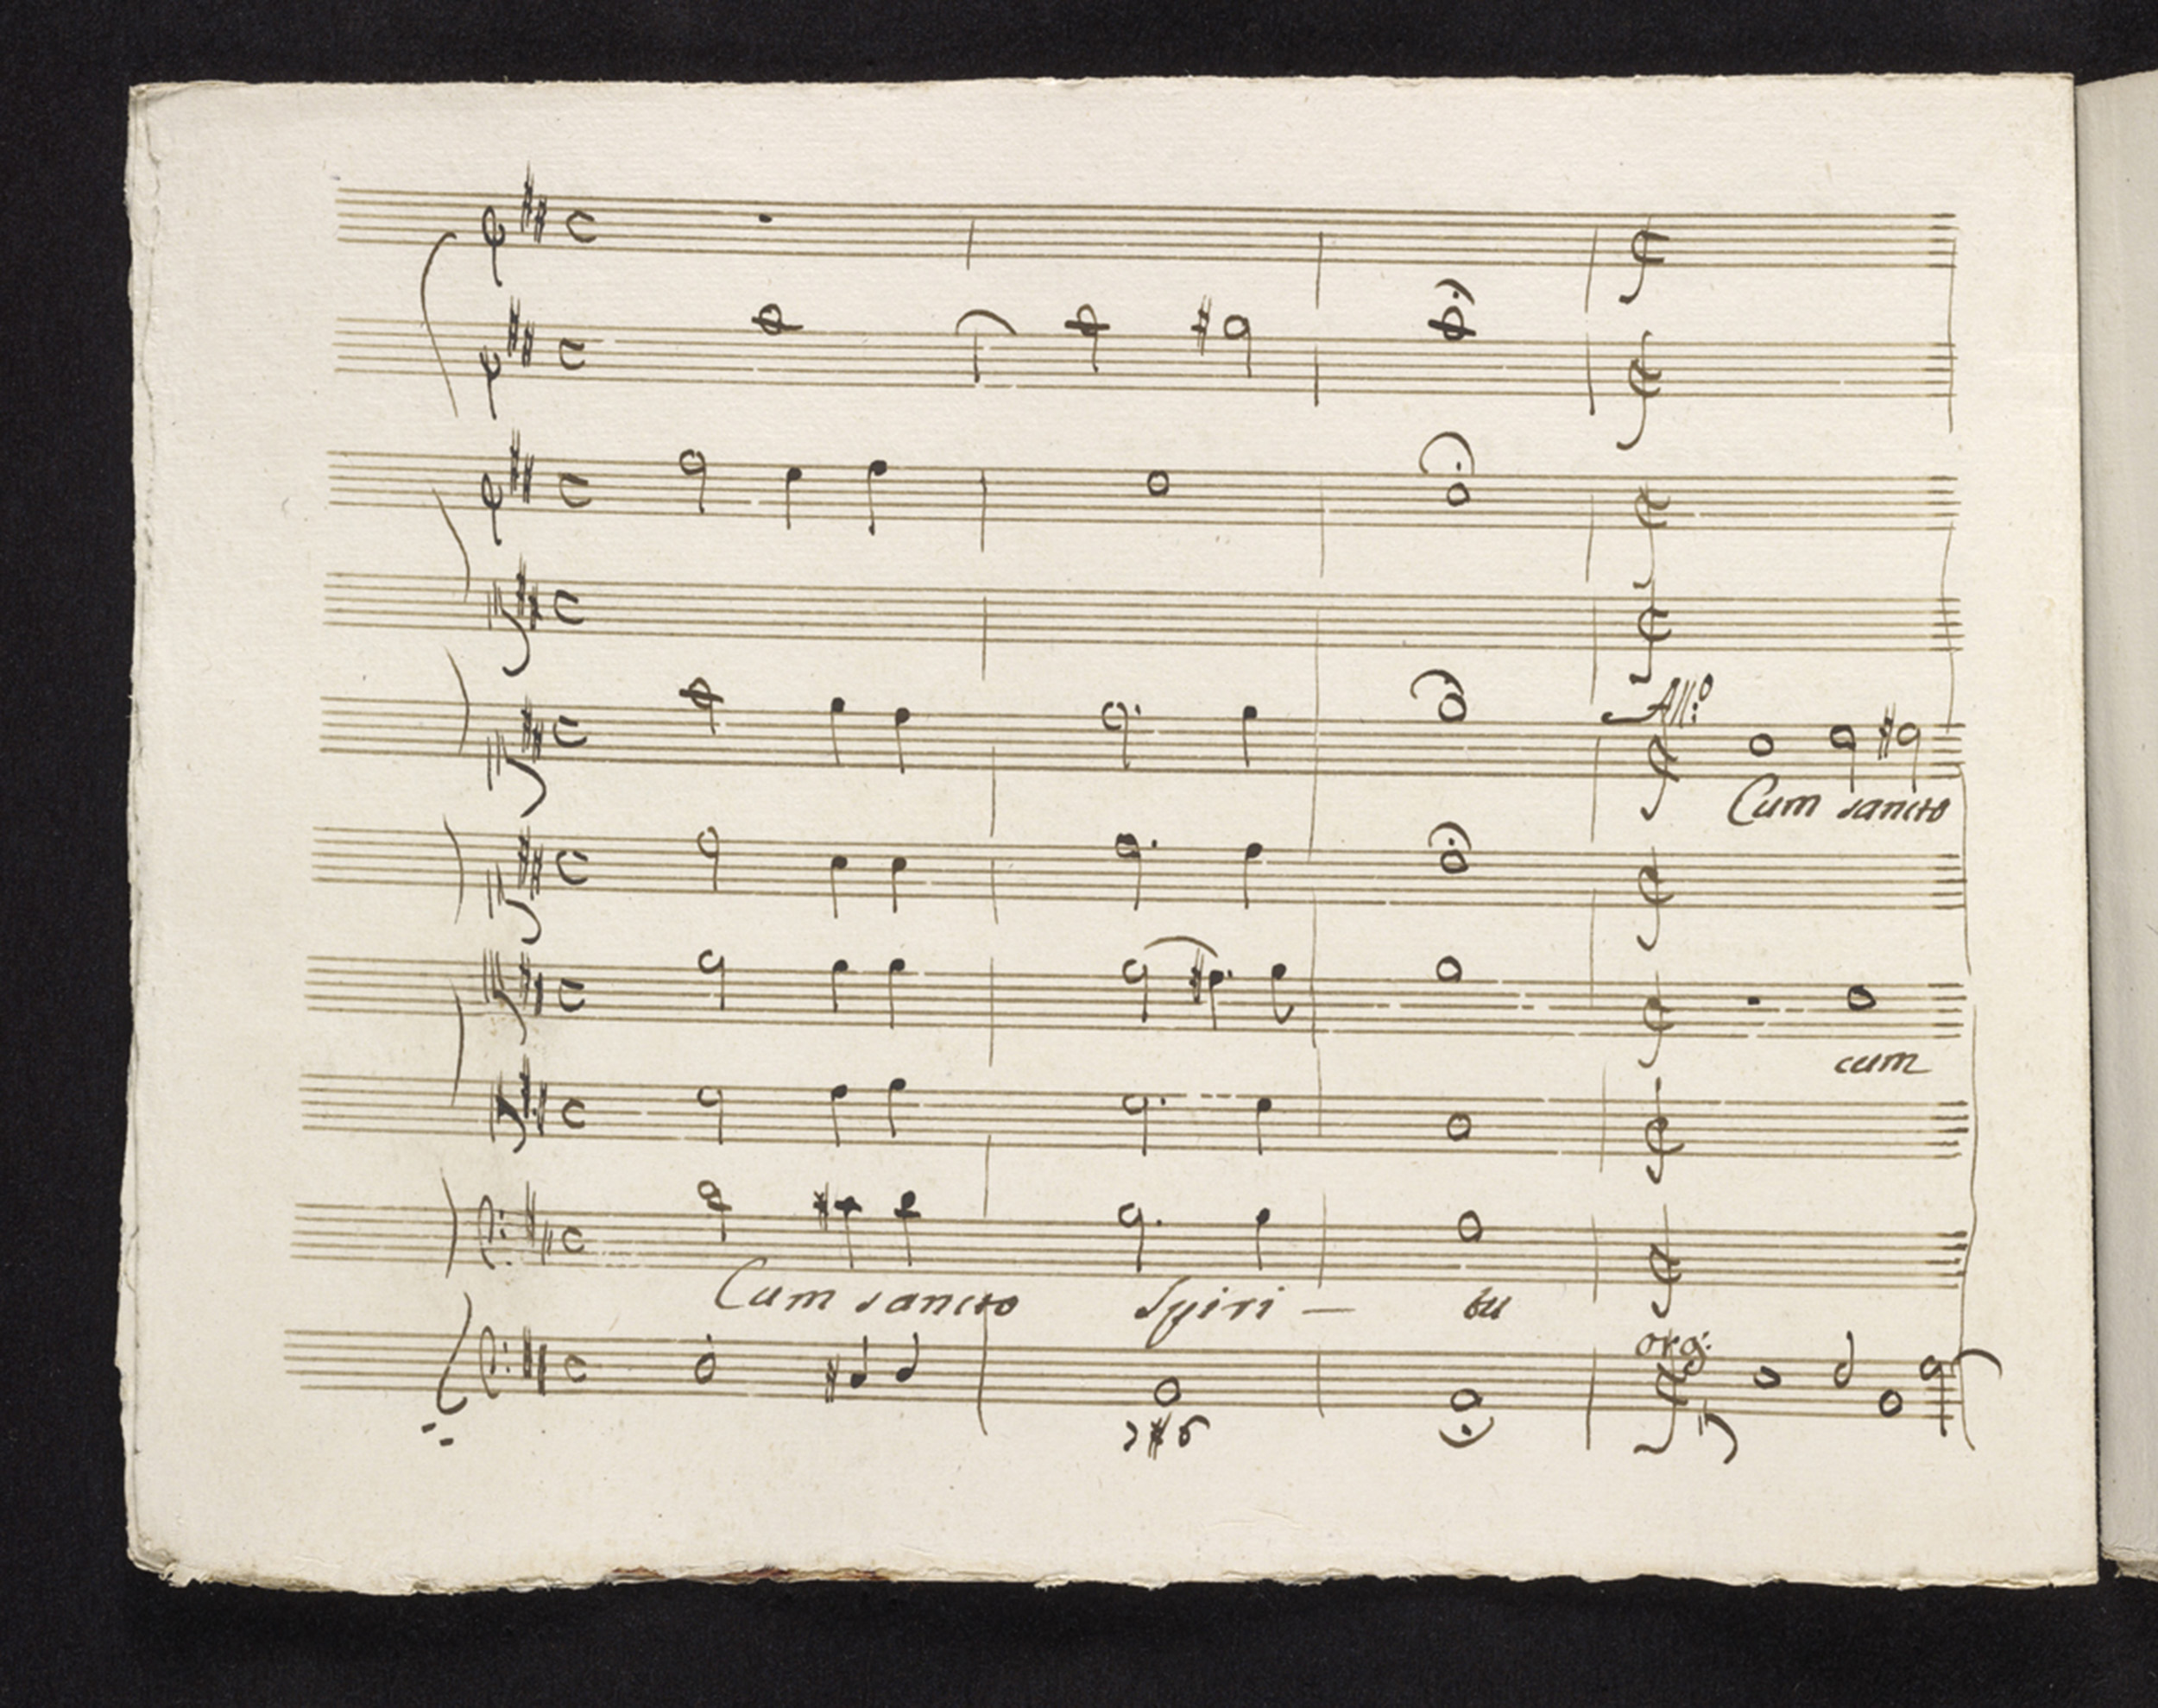 All:o
Cum sancto
cum
Cum sancto Spiri — tu
org:
7 # 6